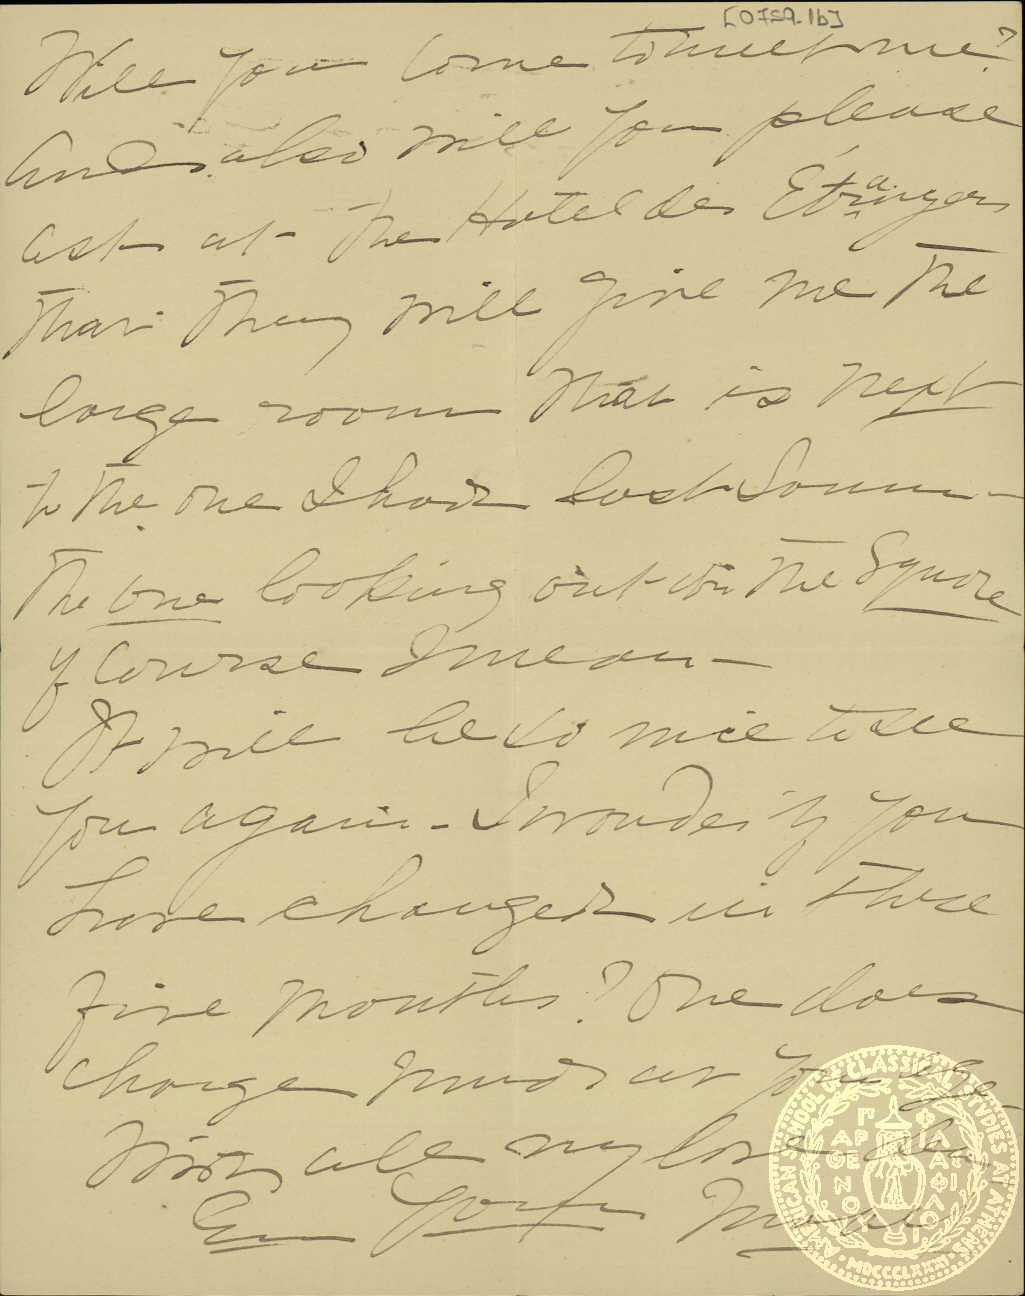 [0759.1b]
Will you come to meet me?
And also will you please
ask at the Hotel des Étrangers
that they will give me the
large room that is next
to the one I had last
the one looking out on the Square
of course I mean –
It will be so nice to see
you again – I wonder if you
have changed in these
five months? One does
change much at your age –
With all my love
Your
AMERICAN SCHOOL OF CLASSICAL STUDIES AT ATHENS
MDCCCLXXXI